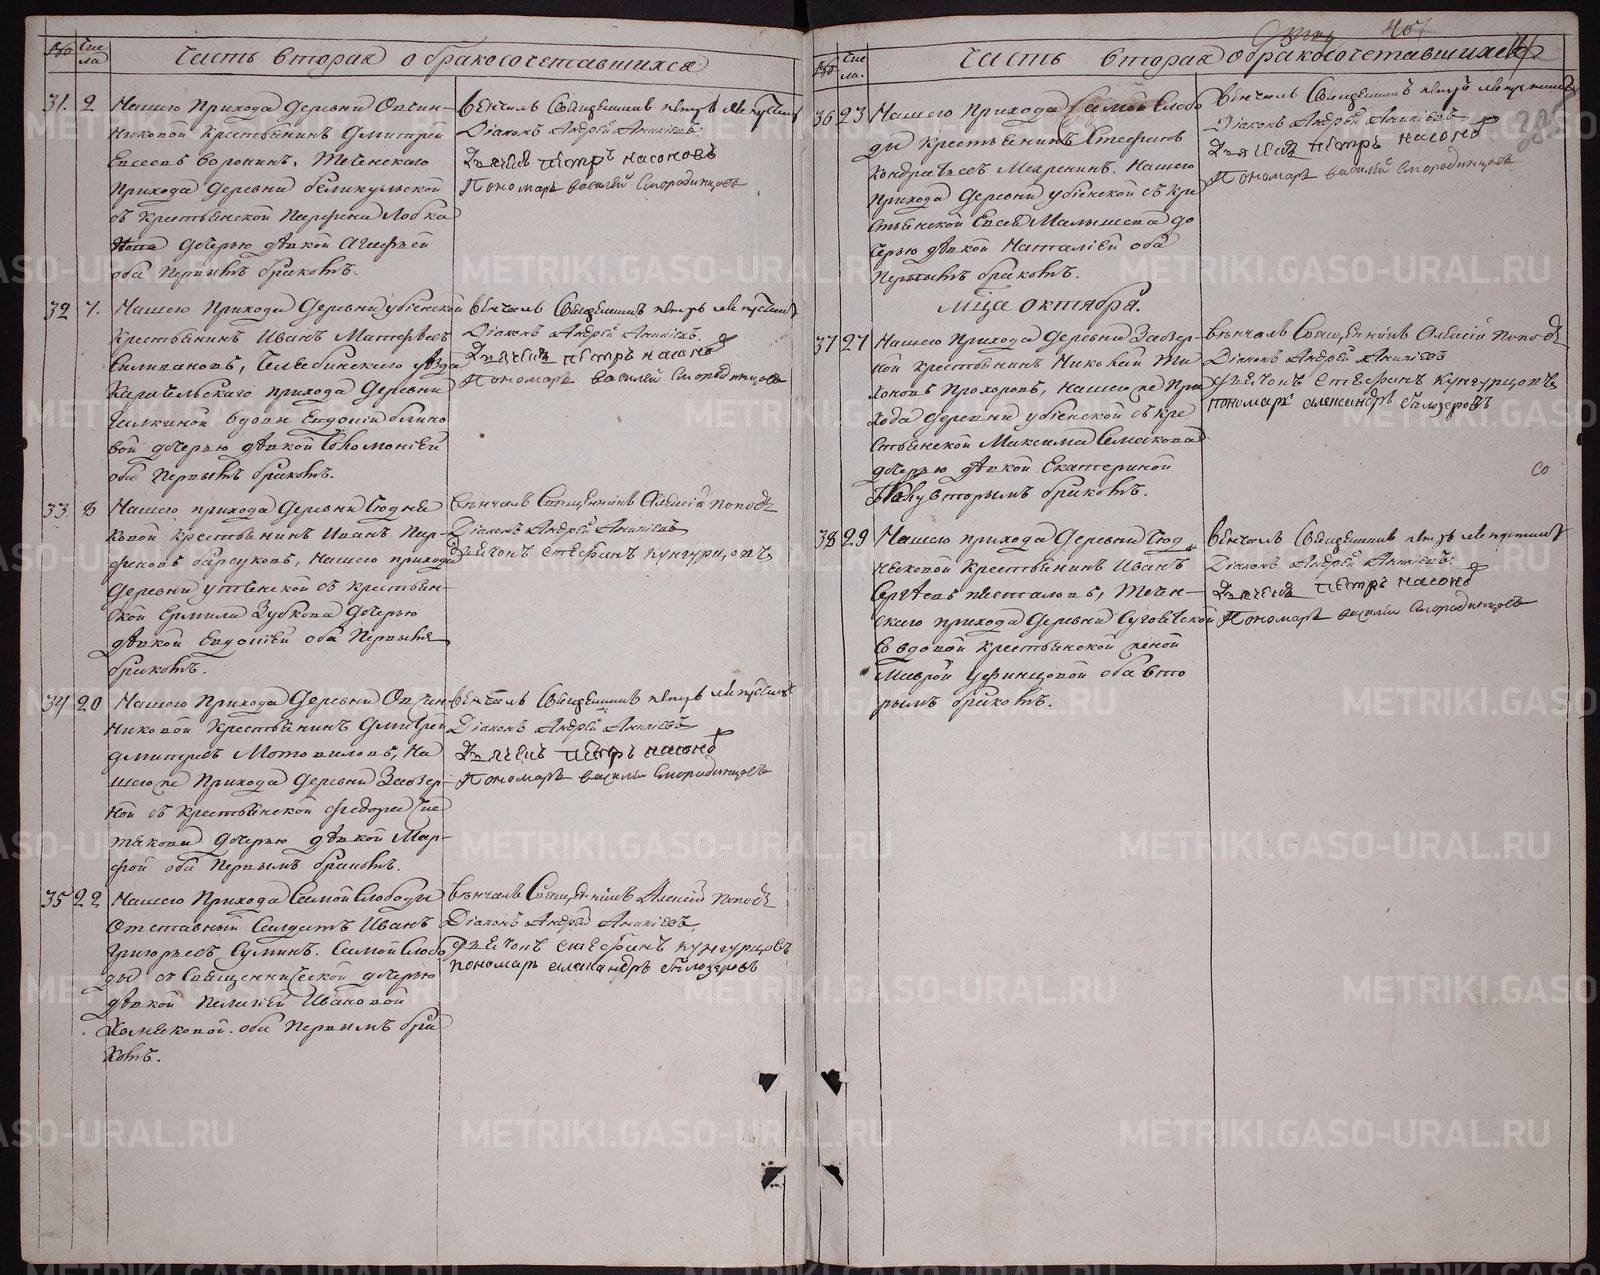 № Чис
ла
Часть вторая о бракосочетавшихся
31. 2
Нашего Прихода Деревни Овчин-
никовой крестьянинъ Дмитрей
Евсеевъ Воронинъ, Теченскаго
Прихода Деревни
съ крестьянской дочерью девкой Агафьей
оба Первымъ бракомъ.
Венчалъ Священникъ Петръ
Діаконъ Андрей Ананіевъ
Дьячекъ Петръ Насоновъ
Пономарь Василей Смородинцовъ
32 7.
Нашего Прихода Деревни Убіенской
крестьянинъ Иванъ Матфеевъ
Селивановъ, Челябинскаго уезда
Прихода Деревни
вдовы Евдокіи
вой дочерью девкой Соломоніей
оба Первымъ бракомъ.
Венчалъ Священникъ Петръ
Діаконъ Андрей Ананіевъ
Дьячекъ Петръ Насоновъ
Пономарь Василей Смородинцовъ
33. 8
Нашего прихода Деревни
ковой крестьянинъ Иванъ Пар-
феновъ Барсуковъ, Нашего прихода
Деревни съ крестьян-
ской Ермила Зубкова дочерью
девкой Евдокіей оба Первымъ
бракомъ.
Венчалъ Священникъ Алексій Поповъ
Діаконъ Андрей Ананіевъ
Дьячокъ Стефанъ Кунгурцовъ
34 20
Нашего Прихода Деревни Овчин-
никовой Крестьянинъ Дмитрей
Дмитревъ Мотовиловъ, На
шего же Прихода Деревни Заозер-
ной съ крестьянской Федора
дочерью девкой Мар-
фой оба Первымъ бракомъ.
Венчалъ Священникъ Петръ
Діаконъ Андрей Ананіевъ
Дьячекъ Петръ Насоновъ
Пономарь Василей Смородинцовъ
35 22
Нашего Прихода Самой Слободы
Отставный Салдатъ Иванъ
Григорьевъ Суминъ. Самой Слобо
ды съ Священнической дочерью
девкой Пелагіей Ивановой
Хомяковой. оба Первымъ бра
комъ.
Венчалъ Священникъ Алексій Поповъ
Діаконъ Андрей Ананіевъ
Дьячокъ Стефанъ Кунгурцовъ
Пономарь Александръ Белозеровъ
407
№ Чис
ла.
Часть вторая о бракосочетавшихся
36 23
Нашего Прихода Самой Слобо
ды крестьянинъ Стефанъ
Кондратьевъ Нашего
Прихода Деревни Убіенской съ кре
стьянской Евсея Малышева до
черью девкой Наталіей оба
Первымъ бракомъ.
Венчалъ Священникъ Петръ
Діаконъ Андрей Ананіевъ
Дьячекъ Петръ Насоновъ
Пономарь Василей Смородинцовъ
Мца Октября.
37 27
Нашего Прихода Деревни Заозер-
ной крестьянинъ Николай Ти
хоновъ Прохоровъ, Нашего же При
хода Деревни Убіенской съ кре
стьянской Максима Семакова
дочерью девкой Екатериной
вторымъ бракомъ.
Венчалъ Священникъ Алексій Поповъ
Діаконъ Андрей Ананіевъ
Дьячокъ Стефанъ Кунгурцовъ
Пономарь Александръ Белозеровъ
38 29
Нашего прихода Деревни
никовой Крестьянинъ Иванъ
Сергеевъ Течен-
скаго прихода Деревни
вдовой крестьянской женой
Маврой Уфинцовой оба вто
рымъ бракомъ.
Венчалъ Священникъ Петръ
Діаконъ Андрей Ананіевъ
Дьячекъ Петръ Насоновъ
Пономарь Василей Смородинцовъ
METRIKI.GASO-URAL.RU